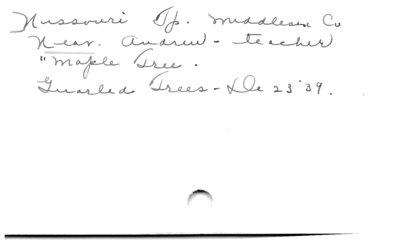 Nissouri Tp. Middlesex Co
Near. Andrew - teacher
"Maple Tree.
Gnarled Trees - De 23 '39.